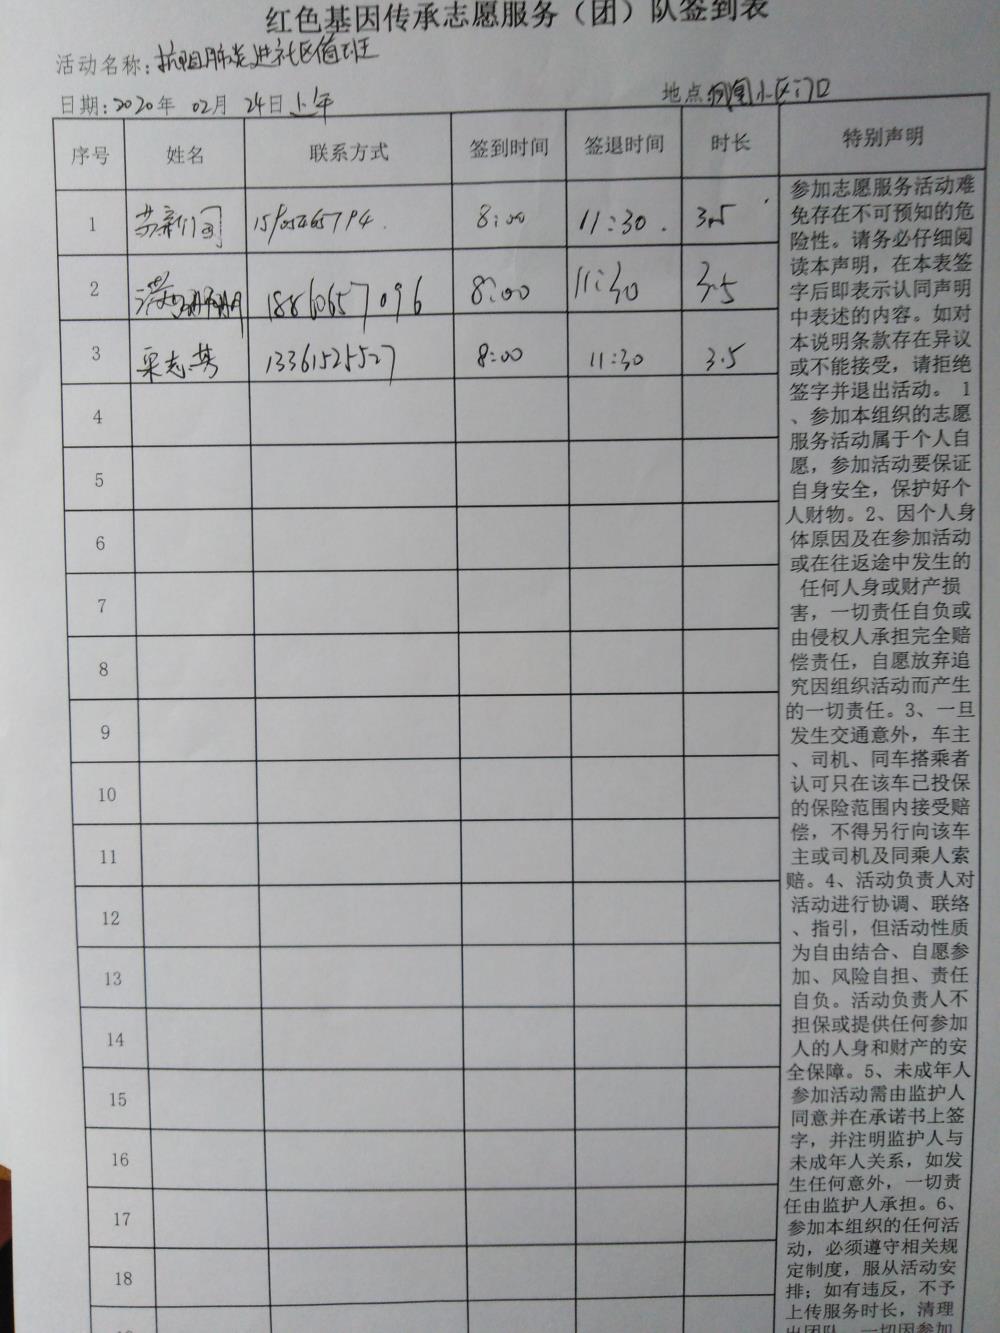 红色基因传承志愿服务（团）队签到表
活动名称：抗阻肺炎进社区值班
日期：2020年 02月 24日上午 地点 凤凰小区门口
序号 姓名 联系方式 签到时间 签退时间 时长 特别声明
1 15905465794. 8:00 11:30. 3.5
2 18860657096 8:00 11:30 3.5
3 13361525527 8:00 11:30 3.5
4
5
6
7
8
9
10
11
12
13
14
15
16
17
18
参加志愿服务活动难
免存在不可预知的危
险性。请务必仔细阅
读本声明，在本表签
字后即表示认同声明
中表述的内容。如对
本说明条款存在异议
或不能接受，请拒绝
签字并退出活动。 1
、参加本组织的志愿
服务活动属于个人自
愿，参加活动要保证
自身安全，保护好个
人财物。2、因个人身
体原因及在参加活动
或在往返途中发生的
任何人身或财产损
害，一切责任自负或
由侵权人承担完全赔
偿责任，自愿放弃追
究因组织活动而产生
的一切责任。3、一旦
发生交通意外，车主
、司机、同车搭乘者
认可只在该车已投保
的保险范围内接受赔
偿，不得另行向该车
主或司机及同乘人索
赔。4、活动负责人对
活动进行协调、联络
、指引，但活动性质
为自由结合、自愿参
加、风险自担、责任
自负。活动负责人不
担保或提供任何参加
人的人身和财产的安
全保障。5、未成年人
参加活动需由监护人
同意并在承诺书上签
字，并注明监护人与
未成年人关系，如发
生任何意外，一切责
任由监护人承担。6、
参加本组织的任何活
动，必须遵守相关规
定制度，服从活动安
排；如有违反，不予
上传服务时长，清理
出团队，一切因参加